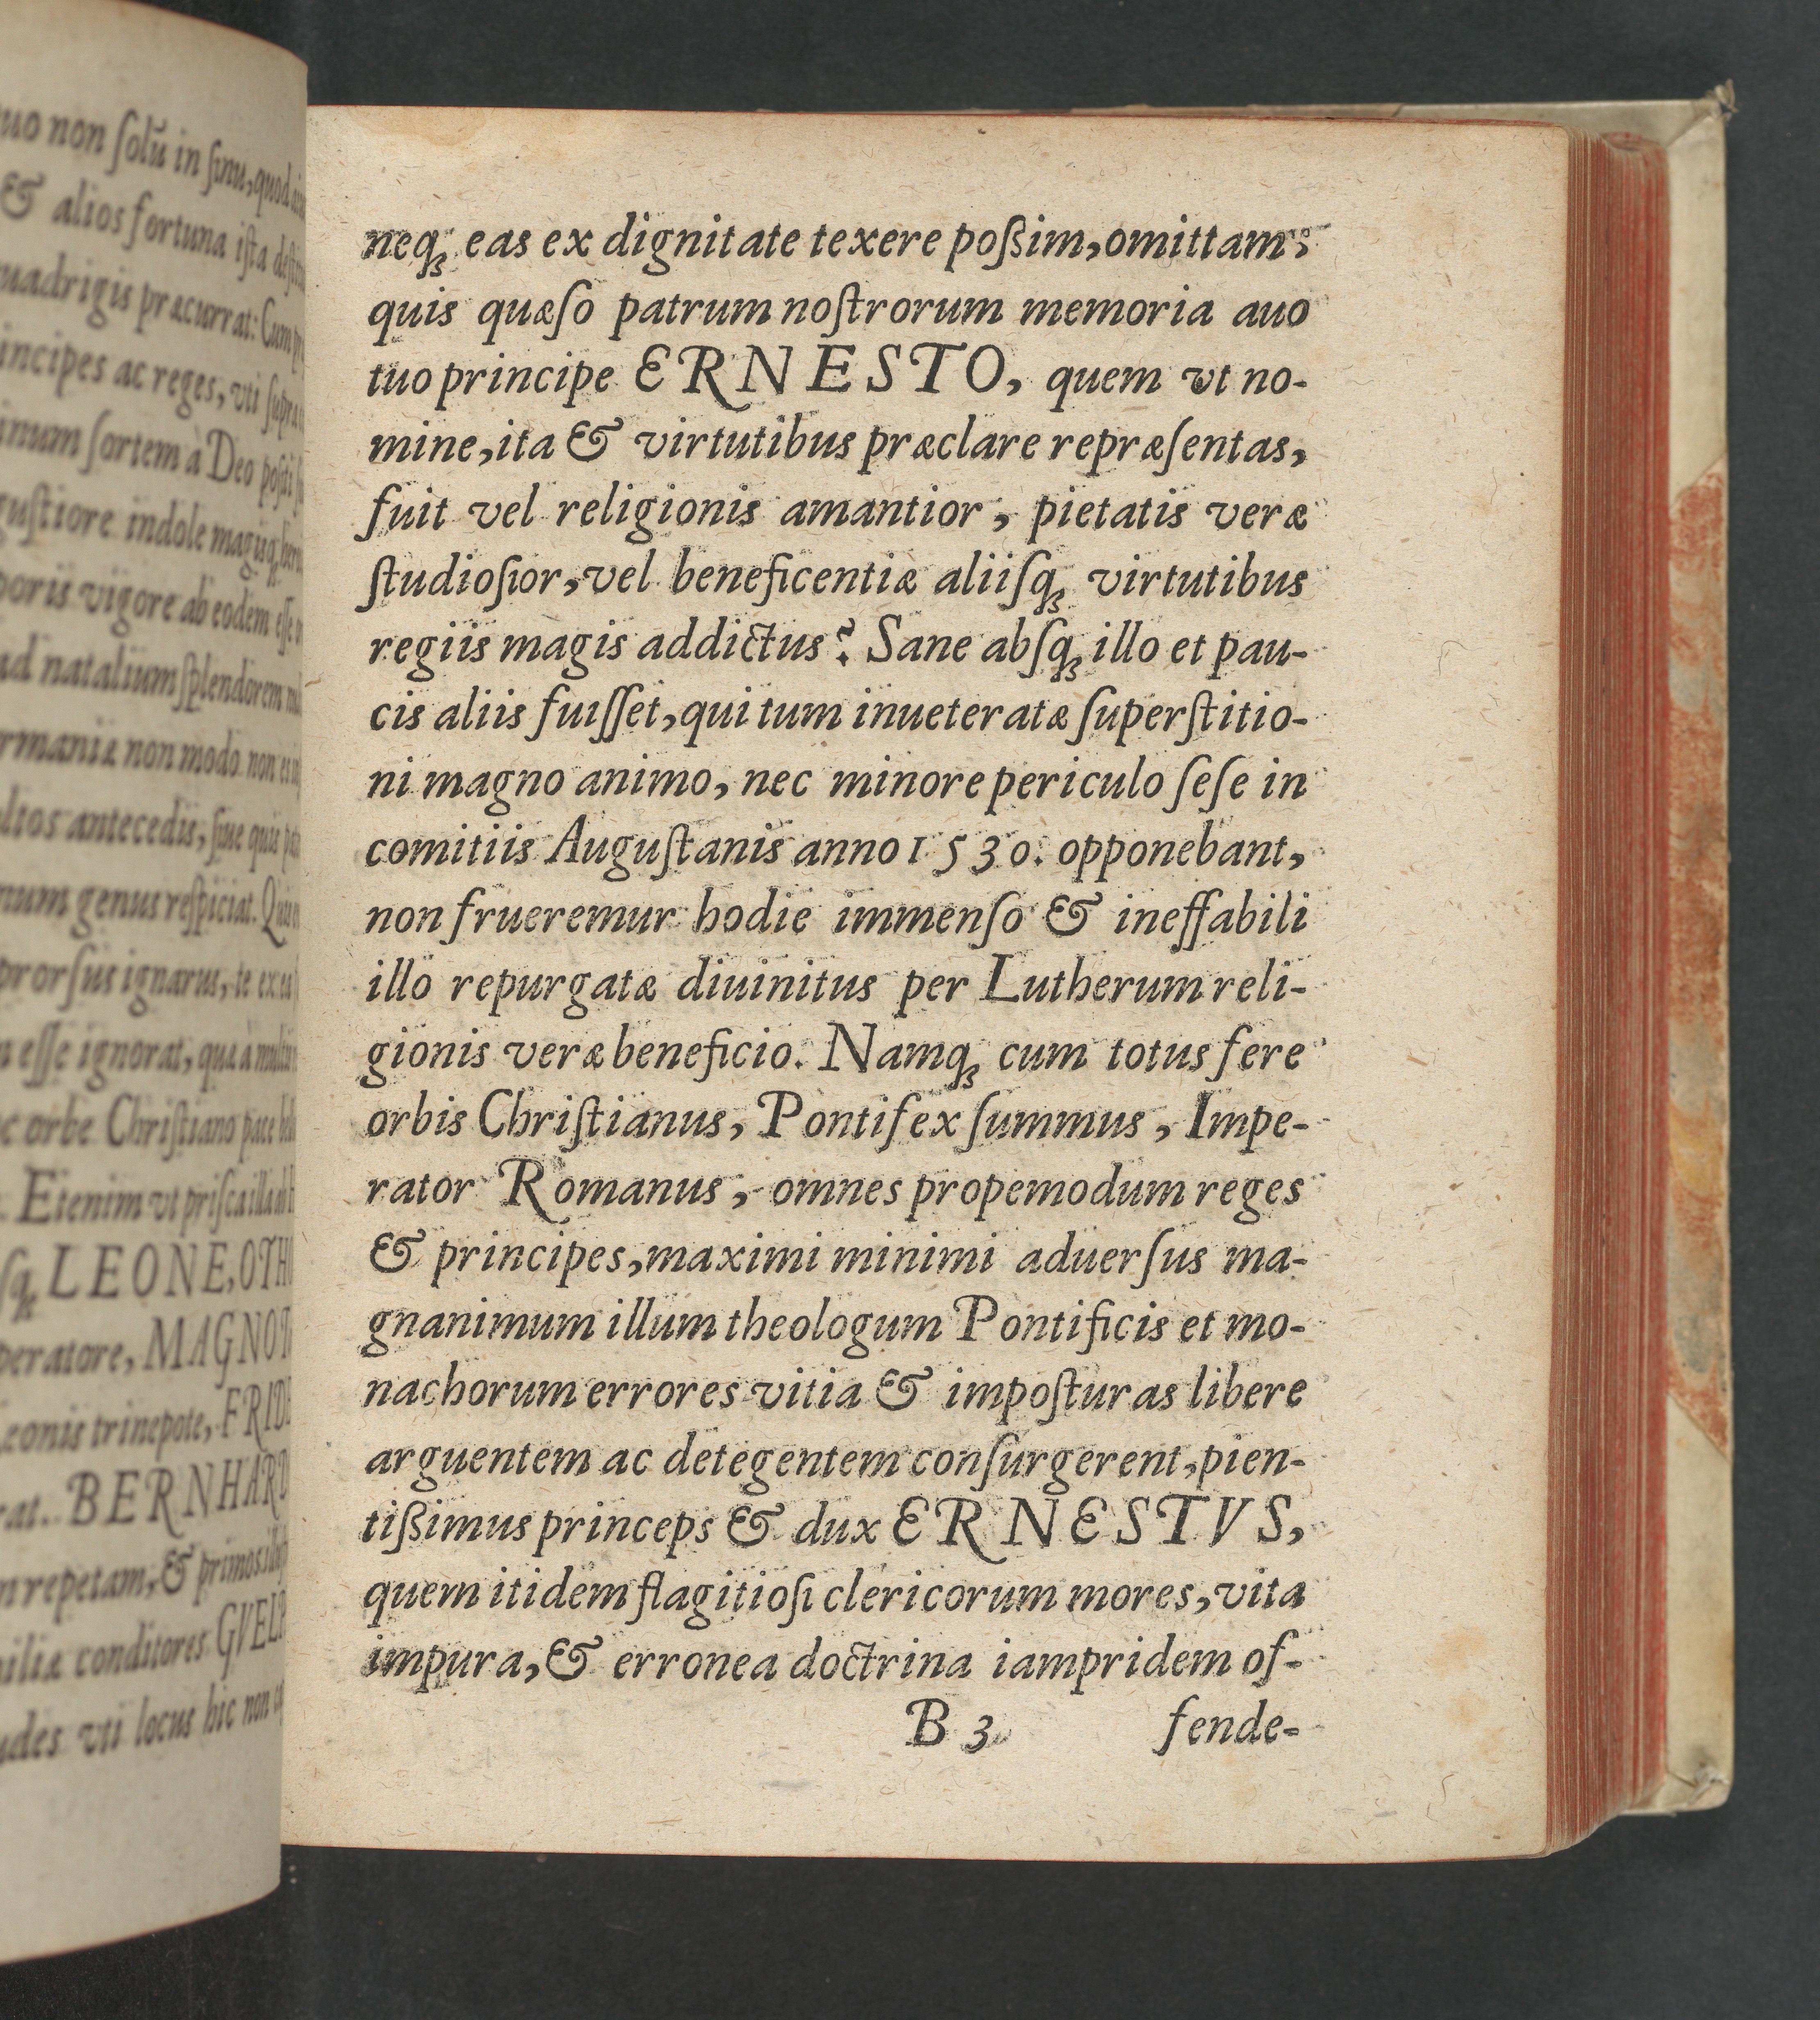 uo non ſolū in ſinu, quod
& alios fortuna iſta
uadrigis præcurrat: Cum
incipes ac reges, vti ſupra
inum ſortem à Deo poſiti
guſtiore indole magisq́
poris vigore ab eodem eſſe
ad natalium ſplendorem
rmaniæ non modo non
ltos antecedis, ſiue quis
num genus reſpiciat.
prorſus ignarus, te ex
eſſe ignorat, qua à
orbe Chriſtiano pace
Etenim vt priſca illa
ſq; LEONE, OTH
peratore, MAGNO
Leonis trinepote, FRID
rat. BERNHARD
repetam, & primos
iliæ conditores GVEL
udes vti locus hic non
neq; eas ex dignitate texere poßim, omittam:
quis quæſo patrum noſtrorum memoria auo
tuo principe ERNESTO, quem vt no-
mine, ita & virtutibus præclare repræſentas,
fuit vel religionis amantior, pietatis veræ
ſtudioſior, vel beneficentiæ aliiſq; virtutibus
regiis magis addictus? Sane abſq; illo et pau-
cis aliis fuiſſet, qui tum inueteratæ ſuperſtitio-
ni magno animo, nec minore periculo ſeſe in
comitiis Auguſtanis anno 1530. opponebant,
non frueremur hodie immenſo & ineffabili
illo repurgatæ diuinitus per Lutherum reli-
gionis veræ beneficio. Namq; cum totus fere
orbis Chriſtianus, Pontifex ſummus, Impe-
rator Romanus, omnes propemodum reges
& principes, maximi minimi aduerſus ma-
gnanimum illum theologum Pontificis et mo-
nachorum errores vitia & impoſturas libere
arguentem ac detegentem conſurgerent, pien-
tißimus princeps & dux ERNESTVS,
quem itidem flagitioſi clericorum mores, vita
impura, & erronea doctrina iampridem of-
B 3 fende-